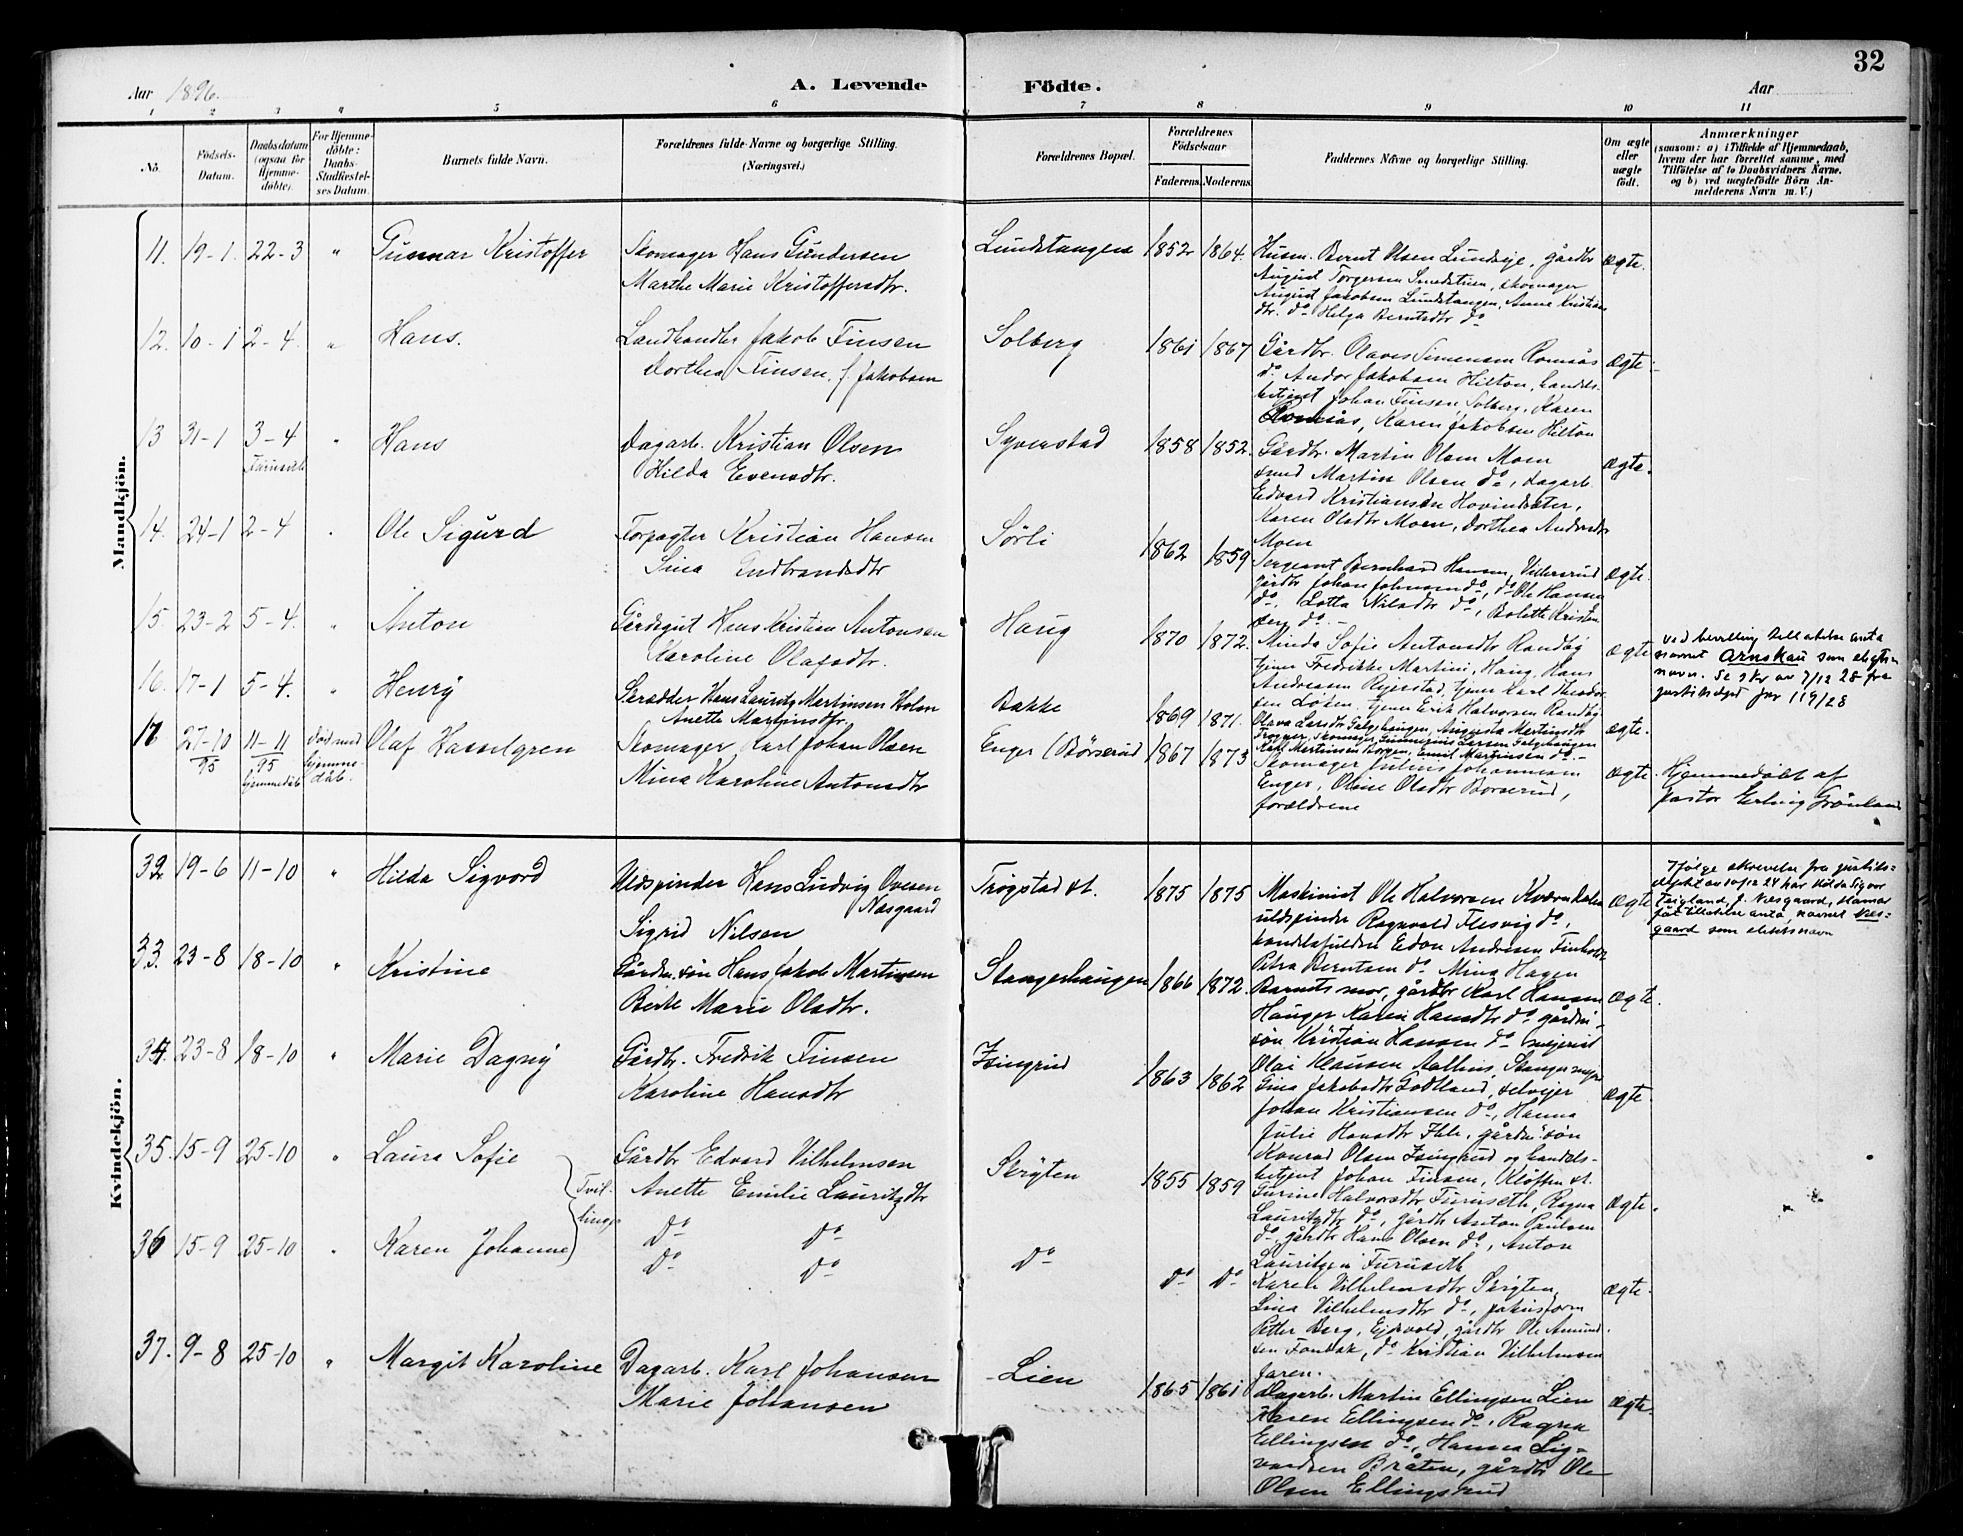 32
Aar 1896.
A. Levende Födte.
Aar
1 2 3 4 5 6 7 8 9 10 11
No.
Födsels-Datum.
Daabsdatum (ogsaa for Hjemme-döbte).
For Hjemme-döbte: Daabs-Stadfæstel-ses Datum.
Barnets fulde Navn.
Forældrenes fulde Navne og borgerlige Stilling. (Næringsvei.)
Forældrenes Bopæl.
Forældrenes Födselsaar
Faderens.
Moderens.
Faddernes Navne og borgerlige Stilling.
Om ægte eller uægte födt.
Anmærkninger
(saasom: a) i Tilfælde af Hjemmedaab,
hvem der har forrettet samme, med
Tilföielse af to Daabsvidners Navne.
og b) ved uægtefödte Börn An-
melderens Navn m. V.)
Mandkjön.
11. 19-1. 22-3 " Gunnar Kristoffer
Skomager Hans Gundersen
Marthe Marie Kristoffersdtr.
Lundstangen 1852 1864.
Husm. Bernt Olsen Lundeje, gårdbr
August Torgersen Smedstuen, skomager
August Jakobsen Lundstangen, Anne Kristians
dtr. do Helga Berntsdtr do
ægte.
12. 10-1 2-4. " Hans.
Landhandler Jakob Finsen
Dorthea Finsen, f. Jakobsen
Solberg 1861 1867
Gårdbr. Olaves Simensen Romsås
do Andor Jakobsen Hilton, handels-
betjent Johan Finsen Solberg, Karen
Romsås, Karen Jakobsen Hilton
ægte.
13 31-1 3-4 " Hans
Furuseth
Dagarb. Kristian Olsen
Hilda Evensdtr.
Syverstad 1858 1852.
Gårdbr. Martin Olsen Moen
smed Martin Olsen do, dagarb.
Edvard Kristiansen Hovindsæter,
Karen Olsdtr Moen, Dorthea Andersdtr
Moen
ægte.
14. 24-1 2-4 " Ole Sigurd
Forpagter Kristian Hansen
Lina Embrandsdtr
Sørli 1862 1859
Sergeant Bernhard Hansen,
gårdbr Johan Johnsen do, do Ole Hansen
do, Lotta Nilsdtr do, Bolette Kristen
sen do. -
ægte.
15. 23-2 5-4. " Anton
Gårdsgut Hans Kristian Antonsen
Karoline Olafsdtr.
Haug 1870 1872.
Minda Sofie Antonsdtr Randby
tjener Fredrikke Martini, Haug, Hans
Andreasen Rejerstad, tjener Karl Theodor
sen Løken, tjener Erik Halvorsen Randby
ægte
Ved bevilling tillatelse anta
navnet Arnskau som slegts-
navn. Se skr av 7/12 28 fra
justitsdept jnr 119/28
16. 17-1 5-4. " Henry
Skrædder Hans Lauritz Martinsen Holm
Anette Martinsdtr.
Bakke 1869 1871.
Olava Larsdtr Galgehaugen, Augusta Martinsdtr
Frogner, Skomager Larsen Galgehaugen
Karl Martinsen Borgen, Emil Martinsen do. -
ægte.
17 27-10/95 11-11/95 hjemmedåb
død med hjemme-dåb.
Olaf Hasselgren
Skomager Karl Johan Olsen
Mina Karoline Antonsdtr
Enger (Børserud 1867 1873
Skomager Julius Johannesen
Enger, Oline Olsdtr Børserud,
forældrene
ægte.
Hjemmedøbt af
pastor Erling Grönland
Kvindekjön.
32 19-6 11-10 " Hilda Sigvord
Uldspinder Hans Ludvig Ovesen
Næsgaard
Sigrid Nilsen
Trøgstad st. 1875 1875
Maskinist Ole Halvorsen Kværndalen
uldspinder Ragnvald Flesvig do,
handelsfuldm Edon Andresen Finholt
Petra Berntsen do Mina Hagen
ægte
Ifølge skrivelse fra justits-
dept av 10/12 24 har Hilda Sigvor
Teigland, f. Næsgaard, Hamar
fåt tillatelse anta navnet Næs-
gaard som slektsnavn
33. 23-8 18-10 " Kristine
Gårdm.søn Hans Jakob Martinsen
Berte Marie Olsdtr.
Stangerhaugen 1866 1872.
Barnets mor, gårdbr Karl Hansen
Hauger Karen Hansdtr do gårdm-
søn Kristian Hansen do mejerist
Olai Klausen Aalhus, Stangermejeri
ægte.
34. 23-8 18-10 " Marie Dagny
Gårdbr. Fredrik Finsen
Karoline Hansdtr
Isingrud 1863 1862
Gina Jakobsdtr Jødtland, selvejer
Johan Kristiansen do, Hanna
Julie Hansdtr Ihle, gårdm.søn
Konrad Olsen Isingrud og handels-
betjent Johan Finsen, Kløften st.
ægte.
35. 15-9 25-10 " Laura Sofie
Tvil-
linge
Gårdbr Edvard Vilhelmsen
Anette Emilie Lauritzdtr
Skryten 1855 1859
Gurine Halvorsdtr Furuseth, Ragna
Lauritzdtr do, gårdbr Anton Paulsen
do, gårdbr Hans Olsen do, Anton
Lauritzen Furuseth
ægte.
36 15-9 25-10 " Karen Johanne
do do
do do
do do do
Karen Vilhelmsdtr Skryten,
Lina Vilhelmsdtr do,
Petter Berg, Ejdsvold, gårdbr Ole Amund-
sen Fonbæk, do Kristian Vilhelmsen
Jaren.
ægte.
37. 9-8 25-10 " Margit Karoline
Dagarb. Karl Johansen
Marie Johansen
Lien 1865 1861
Dagarb. Martin Ellingsen Lien
Karen Ellingsen do, Ragna
Ellingsen do, Hanna Sig-
vardsen Bråten, gårdbr Ole
Olsen Ellingsrud
ægte.